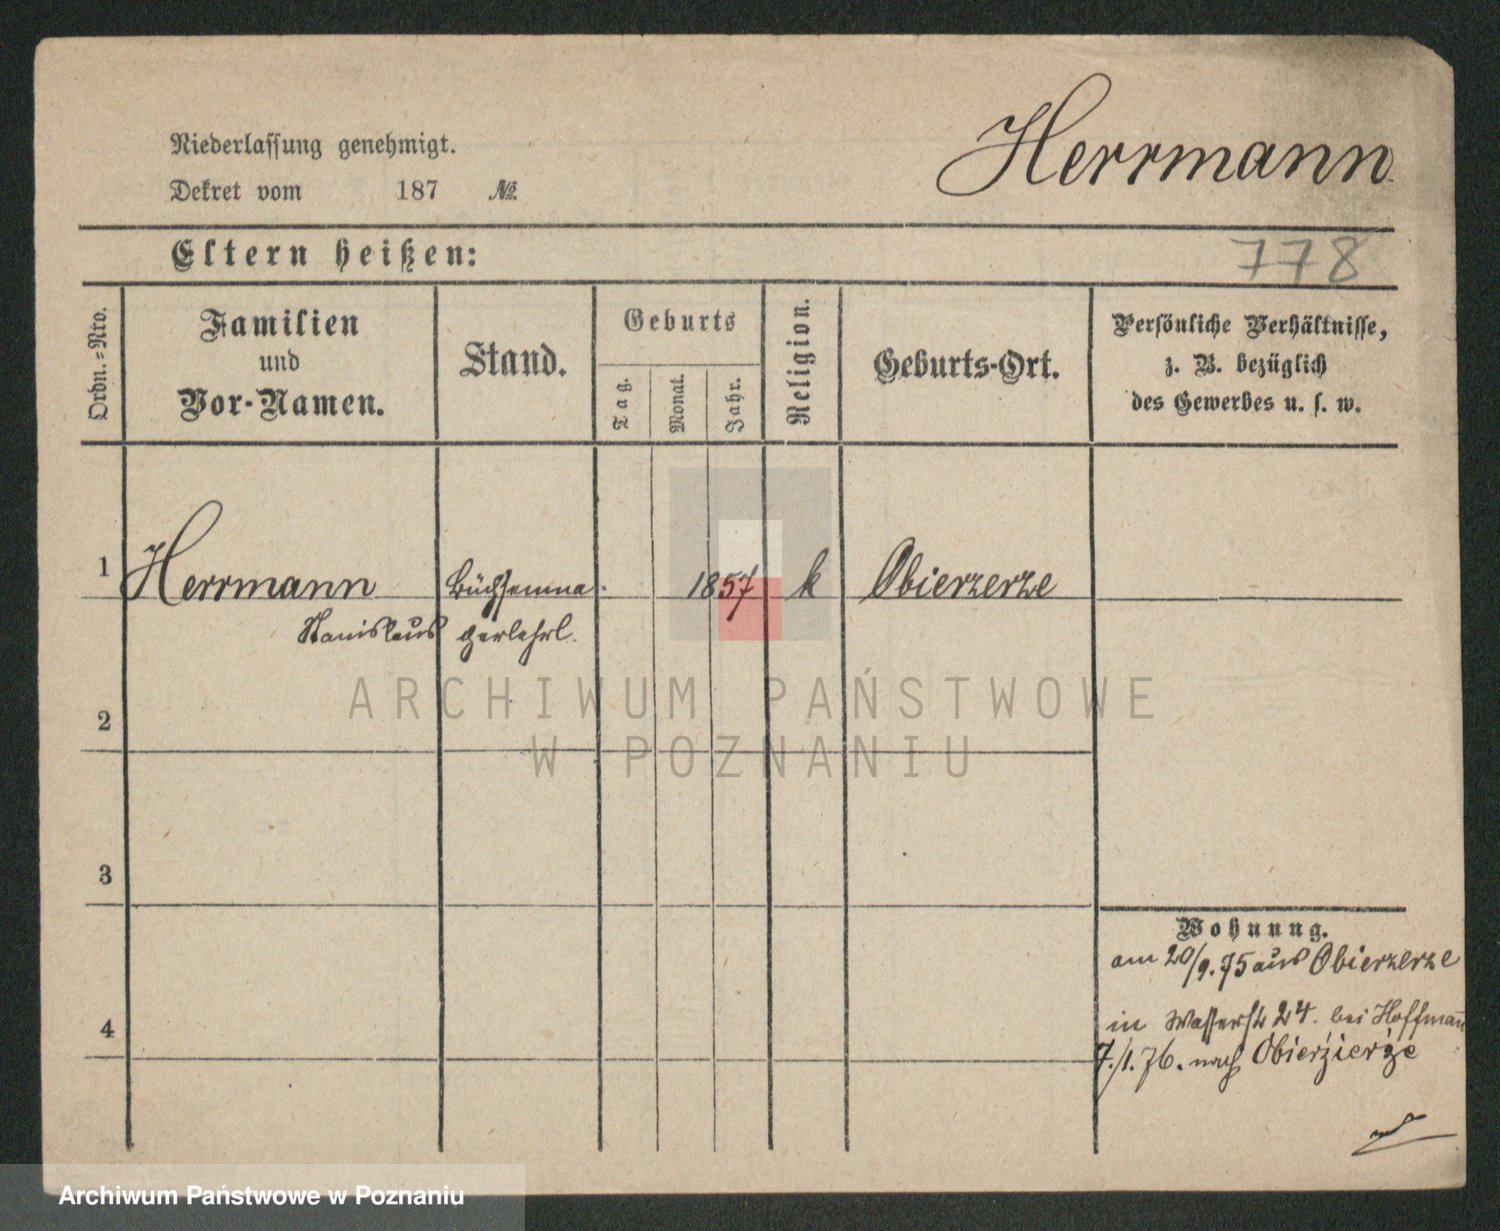 Herrmann
Niederlassung genehmigt.
Dekret vom 187 №
Eltern heißen:
778
Ordn.=Nro.
Familien
und
Vor-Namen.
Stand.
Geburts
Tag.
Monat.
Jahr.
Religion.
Geburts-Ort.
Persönliche Verhältnisse,
z. B. bezüglich
des Gewerbes u. s. w.
1 Herrmann Büchsenma 1857 k Obierzerze
Stanislaus cherlehrl.
2
3
4
Wohnung.
am 20/9.75 aus Obierzerze
in Wasserstr 24. bei Hoffmann
7./1.76. nach Obierzierze
ARCHIWUM PAŃSTWOWE
W POZNANIU
Archiwum Państwowe w Poznaniu